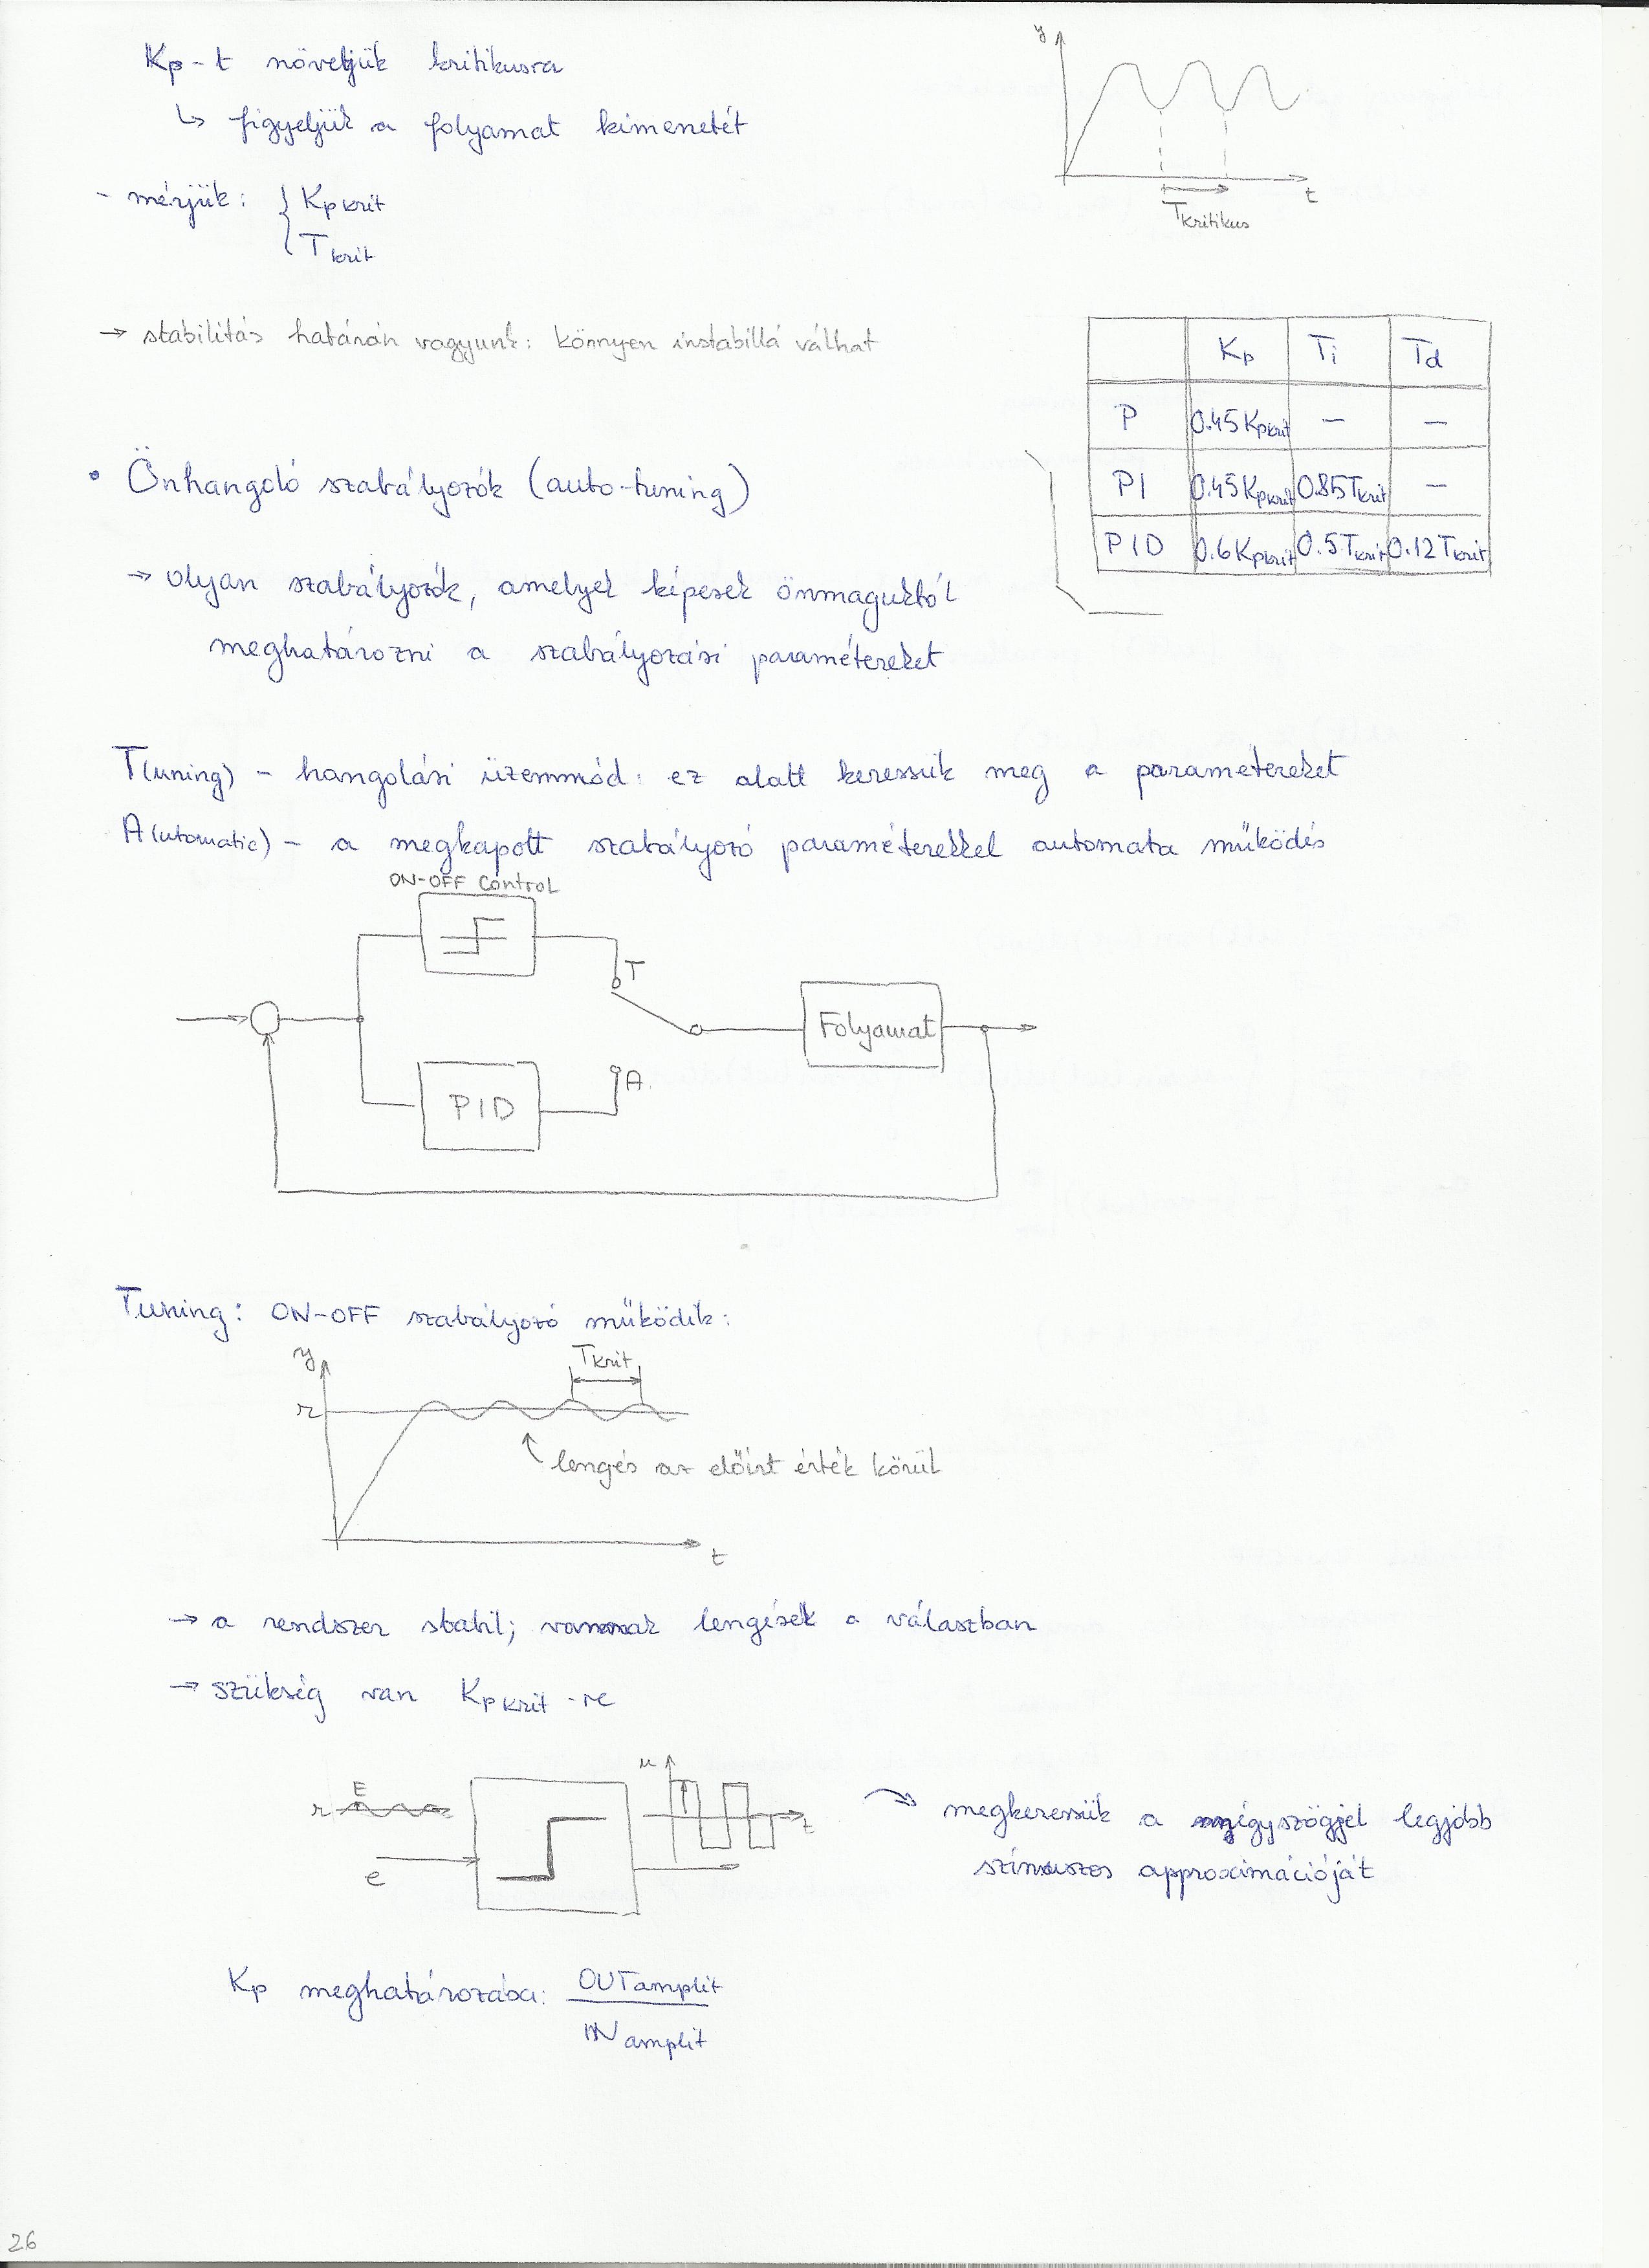 Kp-t növeljük kritikusra
↳ figyeljük a folyamat kimenetét
- mérjük: { Kpkrit
Tkrit
y
t
Tkritikus
→ stabilitás határán vagyunk: könnyen instabillá válhat
Kp Ti Td
P 0.45Kpkrit — —
PI 0.45Kpkrit 0.85Tkrit —
PID 0.6Kpkrit 0.5Tkrit 0.12Tkrit
• Önhangoló szabályozók (auto-tuning)
→ olyan szabályozók, amelyek képesek önmaguktól
meghatározni a szabályozási paramétereket
T(uning) - hangolási üzemmód: ez alatt keressük meg a paramétereket
A(utomatic) - a megkapott szabályozó paraméterekkel automata működés
ON-OFF Control
T
Folyamat
A
PID
Tuning: ON-OFF szabályozó működik:
y
Tkrit
r
lengés az előírt érték körül
t
→ a rendszer stabil; vannak lengések a válaszban
→ szükség van Kpkrit-re
E
r
u
t
e
megkeressük a négyszögjel legjobb
színuszos approximációját
Kp meghatározába: OUTamplit
INamplit
26